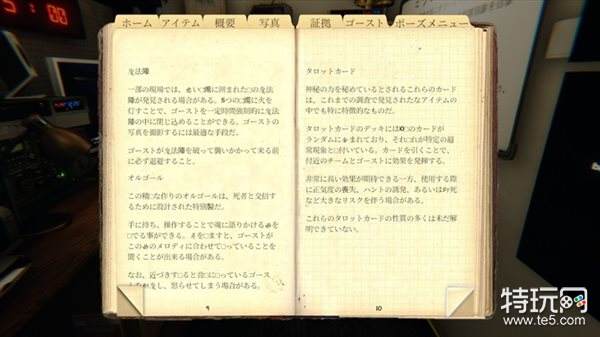 ホーム アイテム 概要 写真 証拠 ゴースト ポーズメニュー
法陣
一部の現場では、いに囲まれた□の法
陣が発見される場合がある。5つの□に火を
灯すことで、ゴーストを一定時間強制的に法
陣の中に閉じ込めることができる。ゴーストの
写真を撮影するには最適な手段だ。
ゴーストが法陣を破って襲いかかって来る前
に必ず退避すること。
オルゴール
この精□な作りのオルゴールは、死者と交信す
るために設計された特別製だ。
手に持ち、操作することで魂に語りかける
□でる事ができる。をますと、ゴーストが
このメロディに合わせて□っていることを
聞くことが出来る場合がある。
なお、近づきす□ると□っているゴース
し、怒らせてしまう場合がある。
9
タロットカード
神秘の力を秘めているとされるこれらのカード
は、これまでの調査で発見されたなアイテムの
中でも特に特徴的なものだ。
タロットカードのデッキには10□のカードが
ランダムにまれており、それれが特定の超
常現象と□付いている。カードを引くことで、
付近のチームとゴーストに効果を発揮する。
非常に高い効果が期待できる一方、使用する際
に正気度の喪失、ハントの誘発、あるいは死
など大きなリスクを伴う場合がある。
これらのタロットカードの性質の多くは未だ解
明できていない。
10
特玩网
www.te5.com